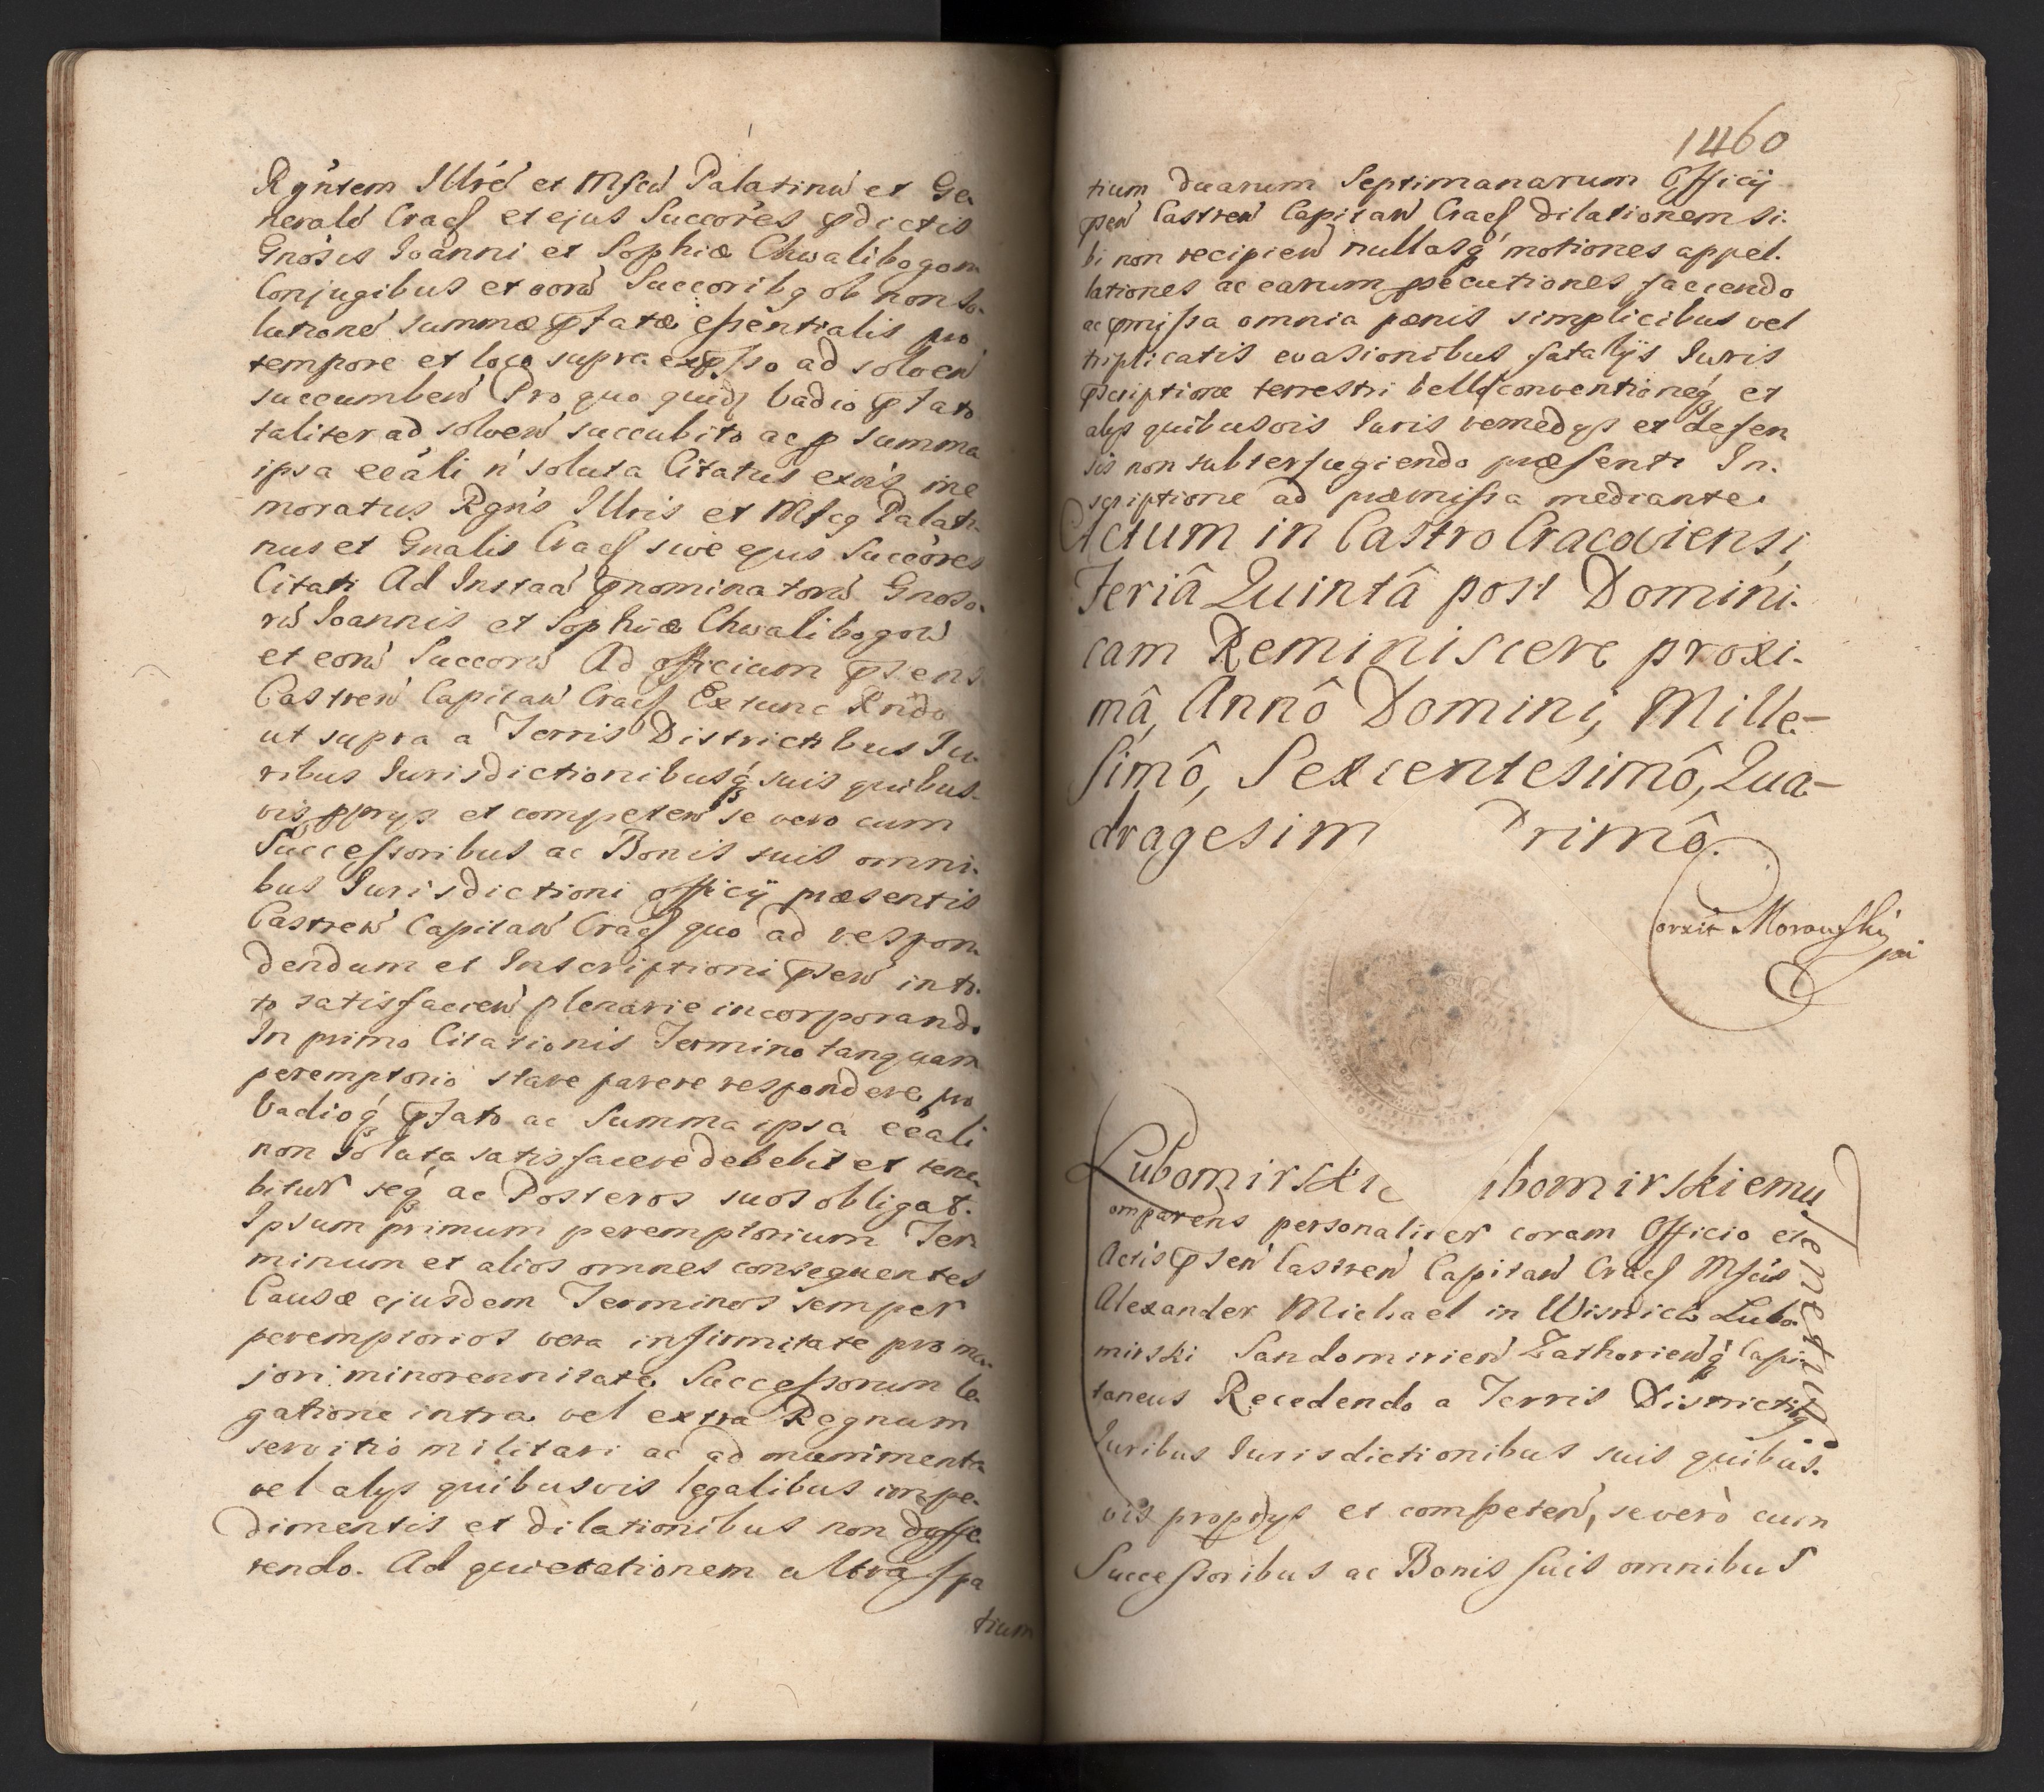 Rgńtem Illrē et Mfcū Palatinū et Ge
nerale Cracƒ et ejus Succōres pdictis
Gnosis Joanni et Sophiæ Chwalibogom
Conjugibus et eorū Succoribq ob non So.
lutionē summæ pfatæ eſsentialis pro
tempore et loco supra expſso ad solveń
succumbeń Pro quo quidē vadio pfato
taliter ad solveń succubito ac p summa
ipsa eeāli ń soluta Citatus exńs me
moratus Rgńs Illris et Mfcq Palati
nus et Gnalis Cracƒ sive ejus Succōres
Citati Ad Instaā pnominatorū Gnoso.
rū Joannis et Sophiæ Chwalibogow
et eorū Succorū Ad officium psens
Castreń Capitań Cracƒ Extunc Rńdo
ut supra a Terris Districtibus Ju
ribus Jurisdictionibusq́ suis quibus-
vis pprijs et competeń se vero cum
Succeſsoribus ac Bonis suis omni.
bus Jurisdictioni officij præsentis
Castreń Capitań Cracƒ quo ad respon
dendum et Inscriptioni pseń in to.
to satisfacień plenarie incorporando
In primo Citationis Termino tanquam
peremptorio stare parere respondere pro
Vadioq́ pfato ac Summa ipsa eeāli
non soluta satisfacere debebit et tene
bitur seq́ ac Posteros suos obligat.
Ipsum primum peremptorium Ter
minum et alios omnes consequentes
Causæ ejusdem Terminos semper
peremptorios vera infirmitate pro ma
jori minorennitate Succeſsorum le
gatione intra vel extra Regnum
servitio militari ac ad munimenta
vel alijs quibusvis legalibus impe.
dimentis et dilationibus non diffe.
rendo. Ad quietationem ultra spa
tium
1460
tium duarum Septimanarum Officij
pseń Castreń Capitań Cracƒ dilationem si.
bi non recipień nullasq́ motiones appel.
lationes ac earum psecutiones faciendo
ac pmiſsa omnia pœnis simplicibus vel
triplicatis evasionibus fatalijs Juris
pscriptione terrestri bello conventioneq́ et
alijs quibusvis Juris remedijs et defen
sis non subterfugiendo præsenti In.
scriptione ad præmiſsa mediante.
Actum in Castro Cracoviensi,
Feriâ Quintâ post Domini.
cam Reminiscere proxi.
mâ, Annô Domini, Mille-
simô, Sexcentesimô, Qua-
dragesim Primô.
Corxit Morawski
Lubomirski bomirskiemu
tenetur
omparens personaliter coram Officio et
Actis pseń Castreń Capitań Cracƒ Mfcus
Alexander Michael in Wisnicz Lubo
mirski Sandomirień Zathorieńq́ Capi-
taneus Recedendo a Terris Districtibq
Juribus Jurisdictionibus suis quibus.
vis proprijs et competeń, se verò cum
Succeſsoribus ac Bonis suis omnibus